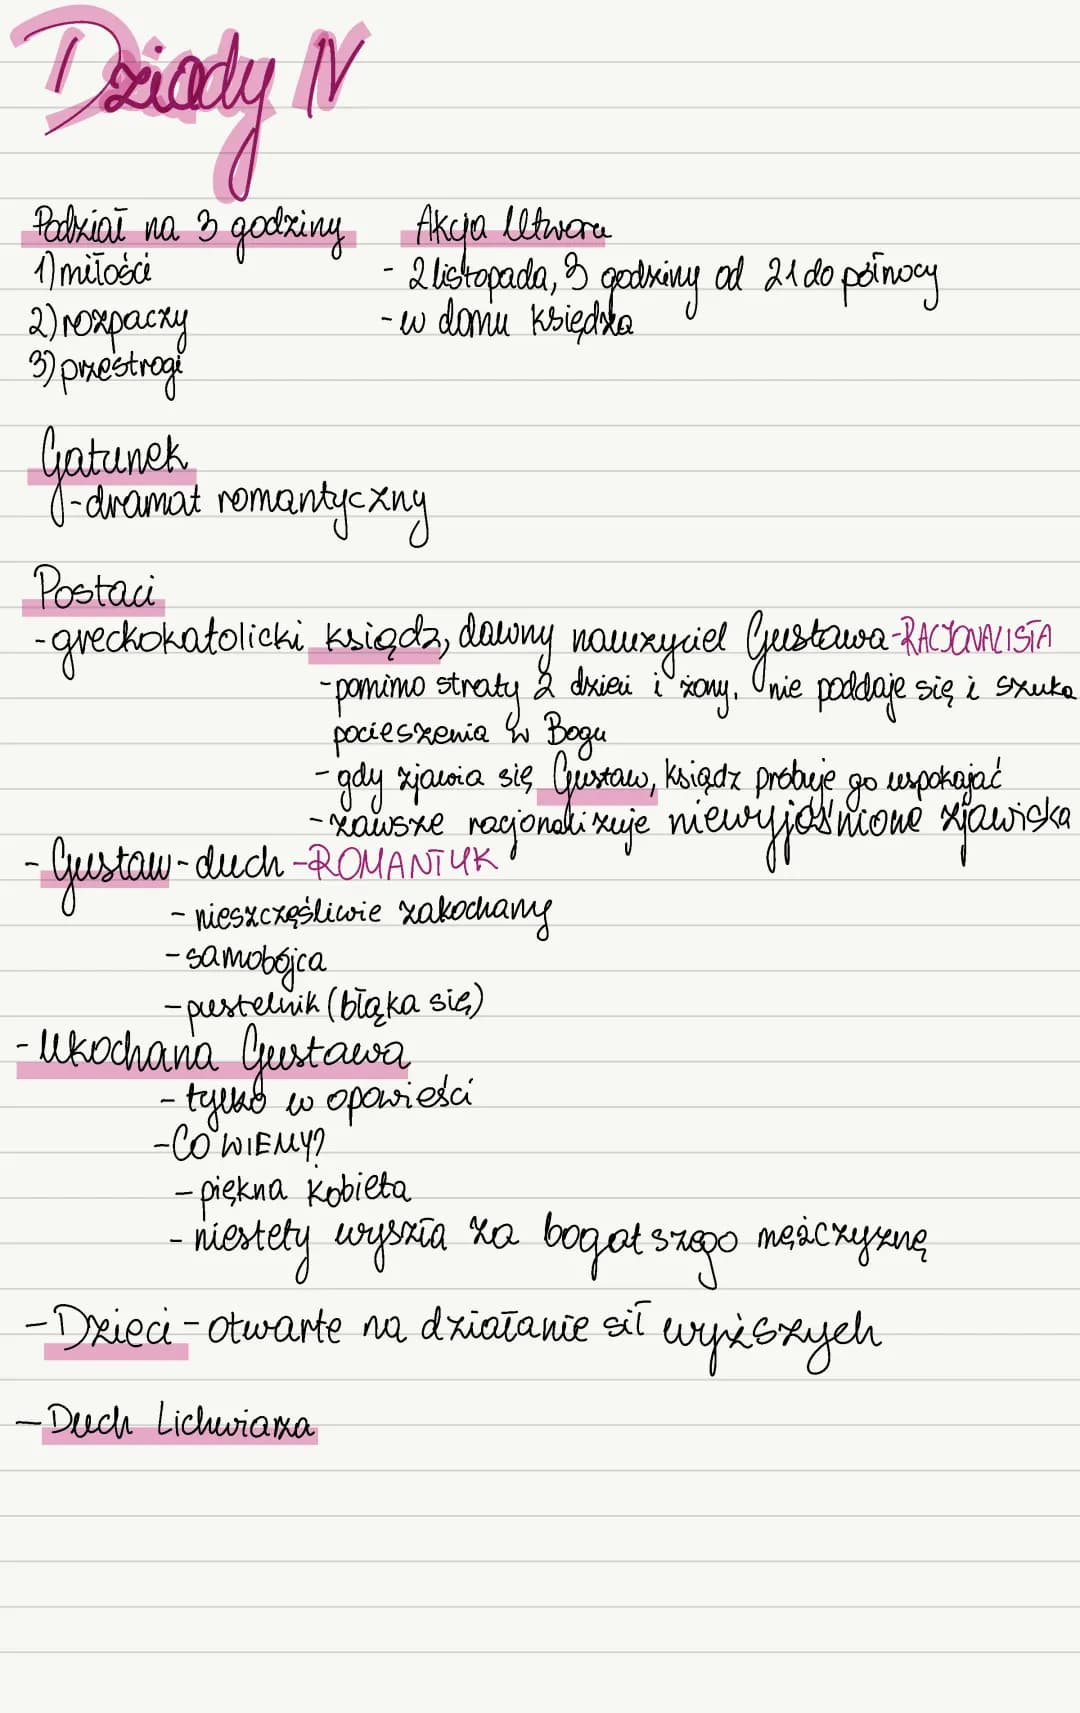 Dziady IV
Podział na 3 godziny
1) miłości
2) rozpaczy
3) przestrogi
Akcja Utworu
- 2 listopada, 3 godziny od 21 do północy
- w domu księdza
Gatunek
- dramat romantyczny
Postaci
- greckokatolicki ksiądz, dawny nauczyciel Gustawa - RACJONALISTA
- pomimo straty 2 dzieci i żony, nie poddaje się i szuka
pocieszenia w Bogu
- gdy zjawia się Gustaw, ksiądz próbuje go uspokajać
- zawsze racjonalizuje niewyjaśnione zjawiska
- Gustaw - duch - ROMANTYK
- nieszczęśliwie zakochany
- samobójca
- pustelnik (błąka się)
- Ukochana Gustawa
- tylko w opowieści
- CO WIEMY?
- piękna kobieta
- niestety wyszła za bogatszego mężczyznę
- Dzieci - otwarte na działanie sił wyższych
- Duch Lichwiarza